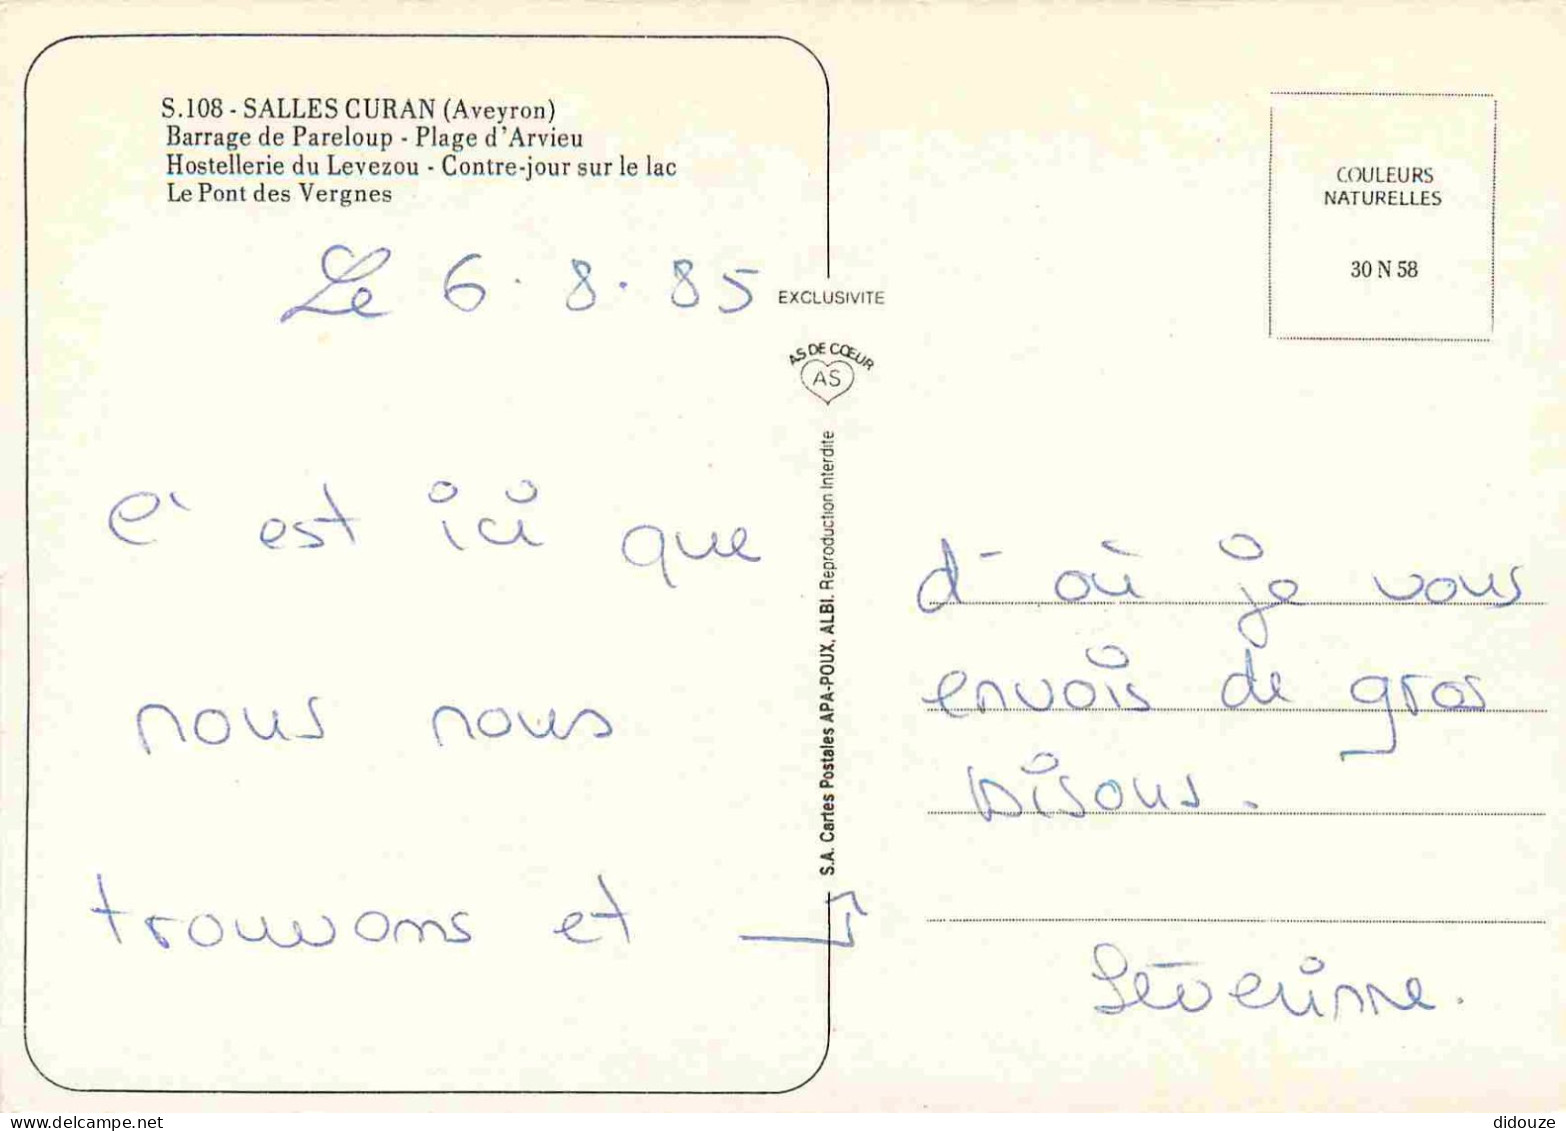 S.108 - SALLES CURAN (Aveyron)
Barrage de Pareloup - Plage d'Arvieu
Hostellerie du Levezou - Contre-jour sur le lac
Le Pont des Vergnes
Le 6.8.85
c'est ici que
nous nous
trouvons et →
EXCLUSIVITE
AS DE CŒUR
AS
S.A. Cartes Postales APA-POUX, ALBI. Reproduction Interdite
COULEURS
NATURELLES
30 N 58
d'où je vous
envois de gros
bisous.
Séverinne.
www.delcampe.net
didouze